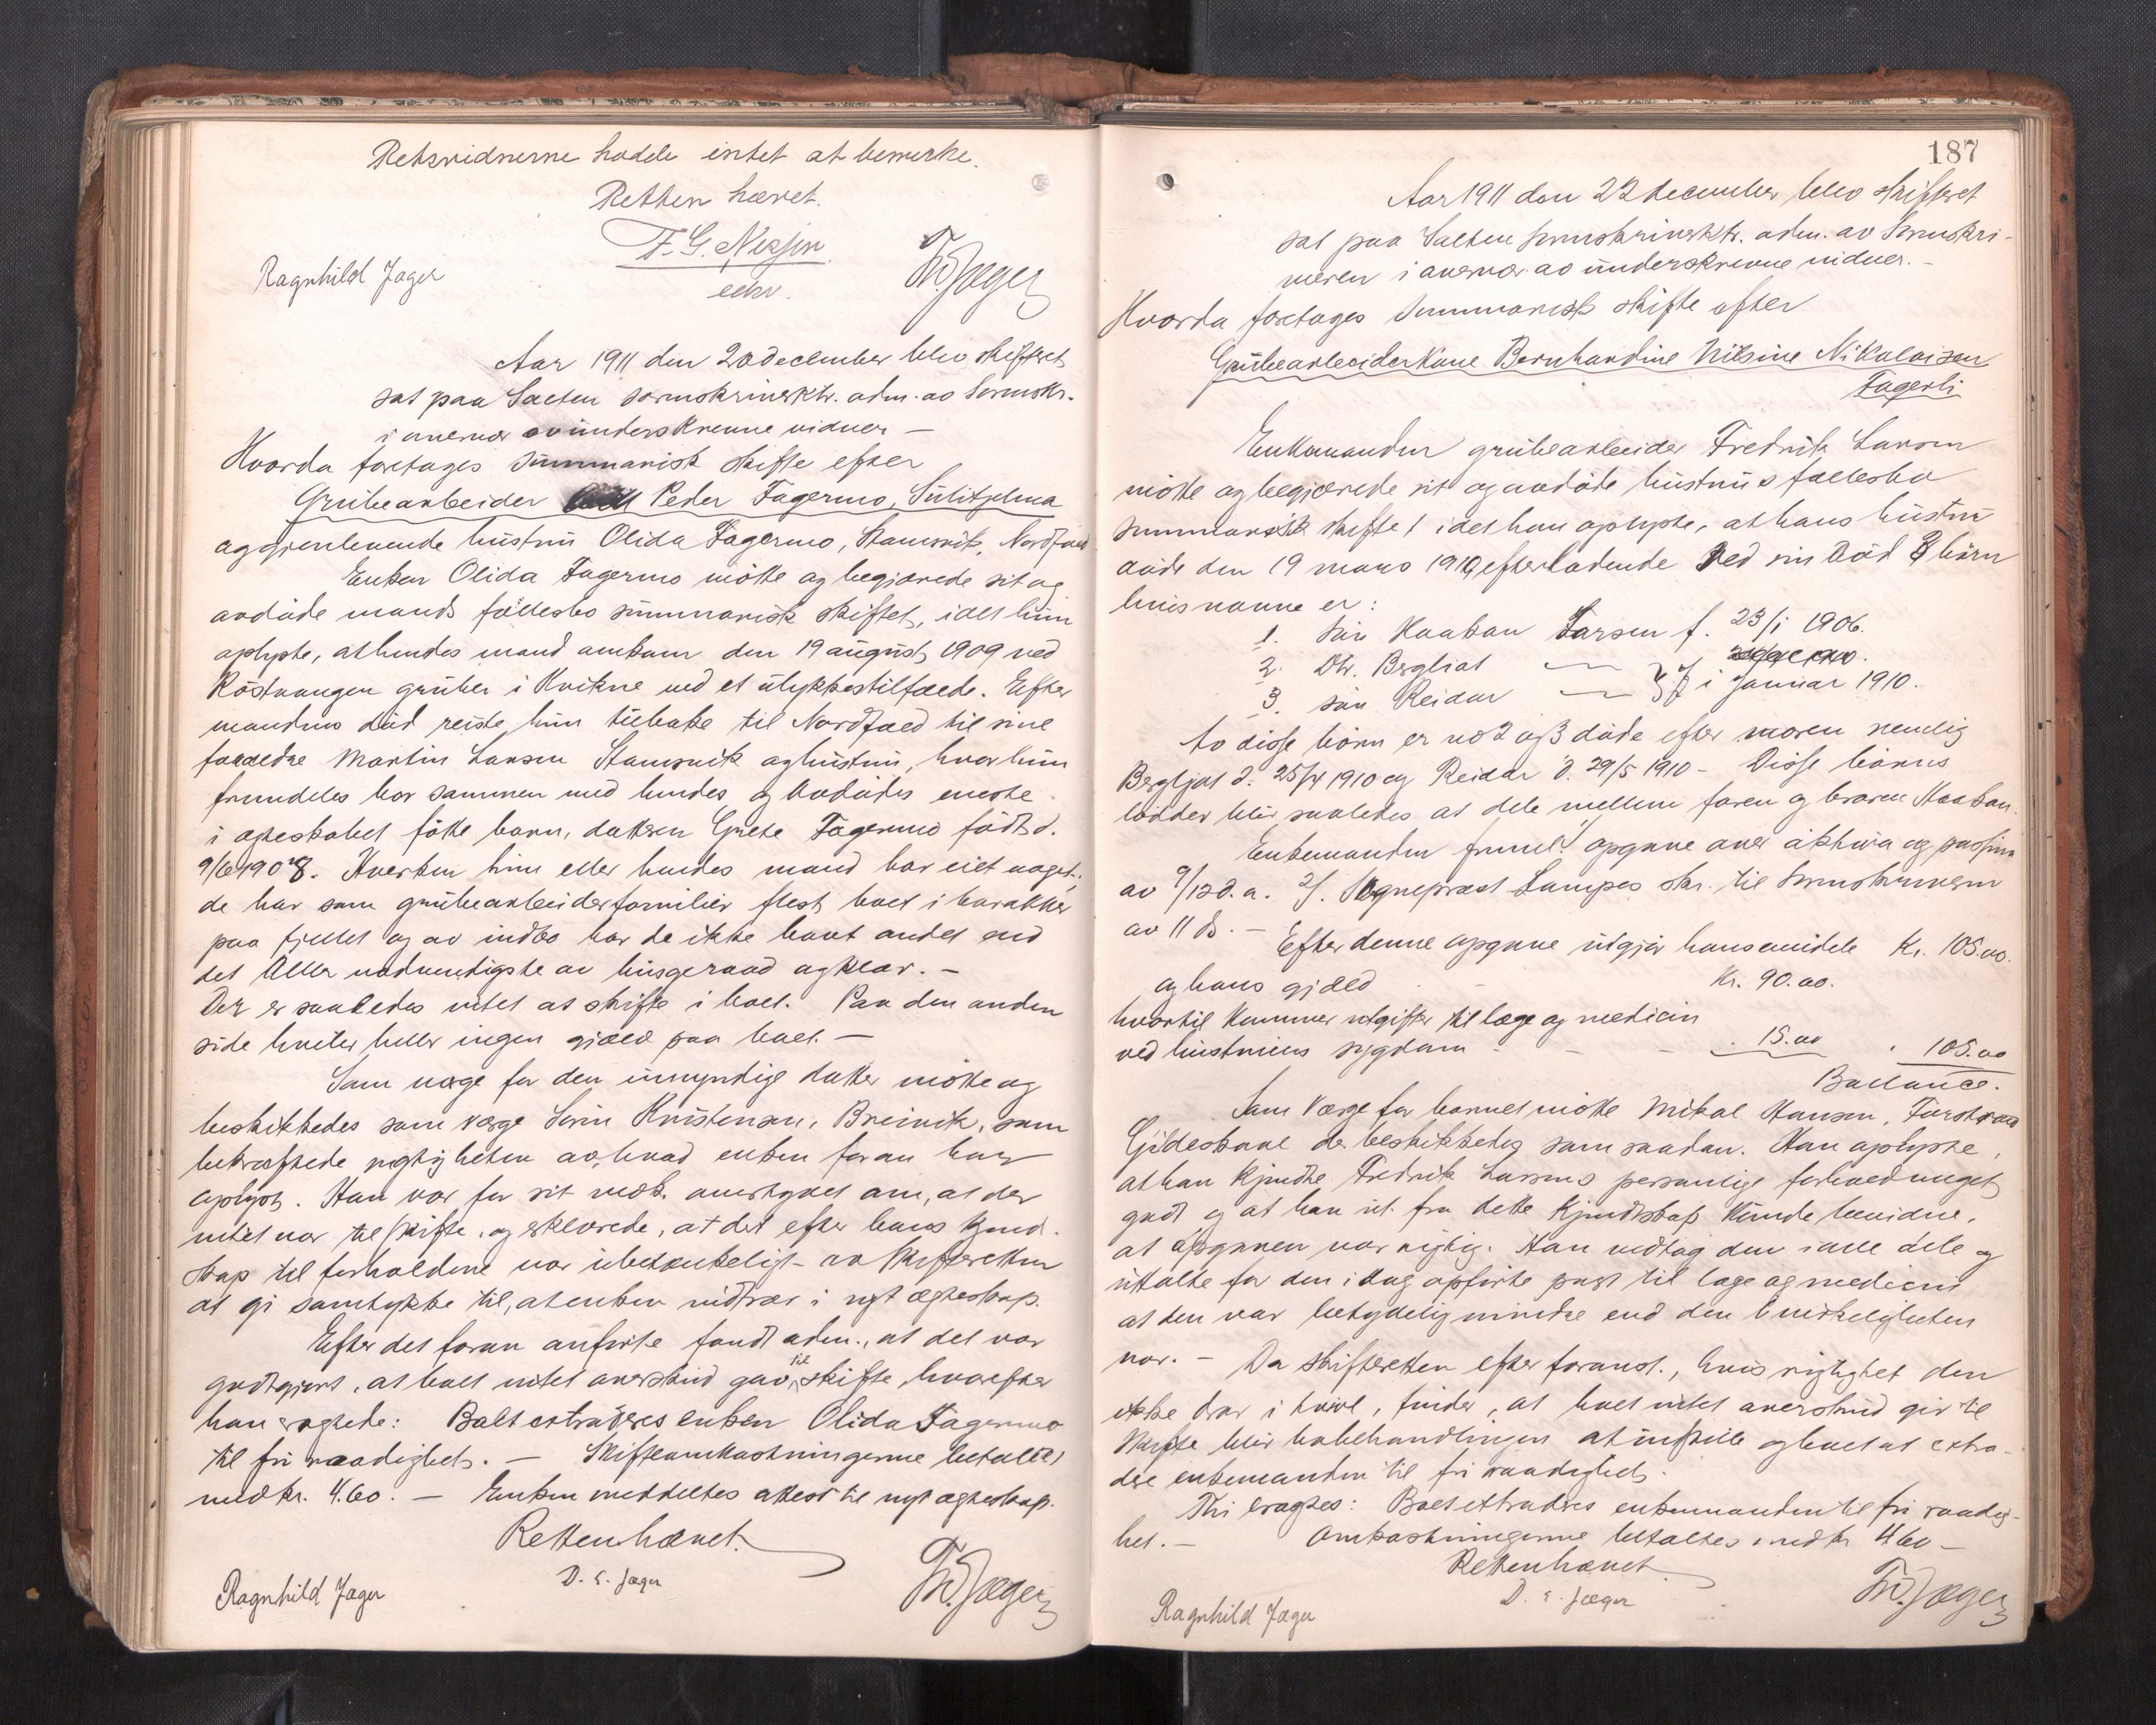 Retsvidnerne hadde intet at bemerke.
Retten hævet.
F. G. Nesjen
edsv.
Ragnhild Jæger
Th. Jæger
Aar 1911 den 20 december blev skifteret
sat paa Salten sorenskriverktr. adm. av Sorenskr.
i overvær av underskrevne vidner –
Hvorda foretages summarisk skifte efter
Grubearbeider Peder Fagermo, Sulitjelma
og gjenlevende hustru Olida Fagermo, Stamsvik, Nordfjord
Enken Olida Fagermo mötte og begjærede sit og
avdöde mands fællesbo summarisk skiftet, idet hun
oplyste, at hendes mand omkom den 19 august 1909 ved
Röstvangen gruber i Kvikne ved et ulykkestilfælde. Efter
mandens död reiste hun tilbake til Nordfjord til sine
forældre Martin Larsen Stamsvik og hustru, hvor hun
fremdeles bor sammen med hendes og avdödes eneste
i egteskabet fötte barn, datteren Grete Fagermo födt d.
9/6 1908. Hverken hun eller hendes mand har eiet noget,
de har som grubearbeiderfamilier flest boet i barakker
paa fjellet og av indbo har de ikke havt andet end
det aller nödvendigste av husgeraad og klær. –
Der er saaledes intet at skifte i boet. Paa den anden
side hviler heller ingen gjæld paa boet. –
Som verge for den umyndige datter mötte og
beskikkedes som verge Sörin Kristensen, Breivik, som
bekræftede rigtigheten av, hvad enken foran har
oplyst. Han var for sit vedk. overtydet om, at der
intet var til skifte, og erklærede, at det efter hans kjend-
skap til forholdene var ubetænkeligt av skifteretten
at gi samtykke til, at enken indtrær i nyt egteskap.
Efter det foran anførte fandt adm., at det var
godtgjort, at boet intet overskud gav til skifte, hvorefter
han eragtede: Boet extraderes enken Olida Fagermo
til fri raadighet. – Skifteomkostningerne betaltes
med kr. 4.60. – Enken meddeltes attest til nyt egteskap.
Retten hævet.
Ragnhild Jæger
D. E. Jæger
Th. Jæger
187
Aar 1911 den 22 december blev skifteret
sat paa Salten sorenskriverktr. adm. av Sorenskri-
veren i overvær av underskrevne vidner. –
Hvorda foretages summarisk skifte efter
Grubearbeiderkone Bernhardine Nilsine Nikolaisen
Fagerli
Enkemanden grubearbeider Fredrik Larsen
mötte og begjærede sit og avdöde hustrus fællesbo
summarisk skiftet idet han oplyste, at hans hustru
döde den 19 mars 1910, efterladende ved sin död 3 börn
hvis navne er:
1. Sön Haakon Larsen f. 23/1 1906.
2. Dtr. Bergliot
3. sön Reidar } f. i Januar 1910.
Av disse börn er no 2 og 3 döde efter moren nemlig
Bergljot d. 25/4 1910 og Reidar d. 29/5 1910 – Disse börns
lodder blir saaledes at dele mellem faren og broren Haakon.
Enkemanden freml. 1/ opgave over aktiva og passiva
av 9/12 d.a. 2/. Sogneprest Lampes skr. til Sorenskriveren
av 11 ds. –
Efter denne opgave utgjör hans midele Kr. 105.00.
og hans gjæld Kr. 90.00.
hvortil kommer utgifter til læge og medicin
ved hustruens sygdom - - - 15.00 105.00
Ballance.
Som verge for barnet mötte Mikal Hansen, Forstrand
Gildeskaal der beskikkedes som saadan. Han oplyste,
at han kjendte Fredrik Larsens personlige forhold meget
godt og at han ut fra dette kjendskap kunde bevidne,
at opgaven var rigtig. Han vedtog den i alle dele og
uttalte for den i dag opførte post til læge og medicin
at den var betydelig mindre end den i virkeligheten
var. – Da skifteretten efter foranst., hvis rigtighet den
ikke drar i tvivl, finder, at boet intet overskud gir til
skifte blir bobehandlingen at indstille og boet at extra-
dere enkemanden til fri raadighet.
Thi eragtes: Boet extraderes enkemanden til fri raadig-
het. – Omkostningerne betaltes med kr 4.60 –
Retten hævet
Ragnhild Jæger
D. E. Jæger
Th. Jæger